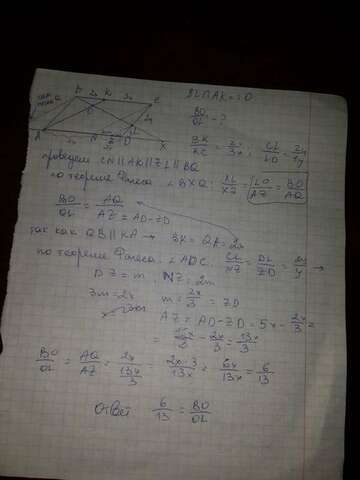 BL∩AK=O
B 2x K 3x C
O
L
A N Z D X
BO/OL - ?
BK/KC = 2x/3x, CL/LD = 2y/1y
проведем CN || AK || ZL || BQ
по теореме Фалеса ∠BXQ: XL/XZ = LO/AZ = BO/AQ
BO/OL = AQ/AZ AZ = AD-ZD
так как QB || KA → BK = QA = 2x
по теореме Фалеса ∠ADC: CL/NZ = DL/ZD = 2y/y →
DZ = m, NZ = 2m
3m = 2x m = 2x/3 = ZD
AZ = AD - ZD = 5x - 2x/3 =
= 15x/3 - 2x/3 = 13x/3
BO/OL = AQ/AZ = 2x/(13x/3) = 2x·3/13x = 6x/13x = 6/13
Ответ 6/13 = BO/OL